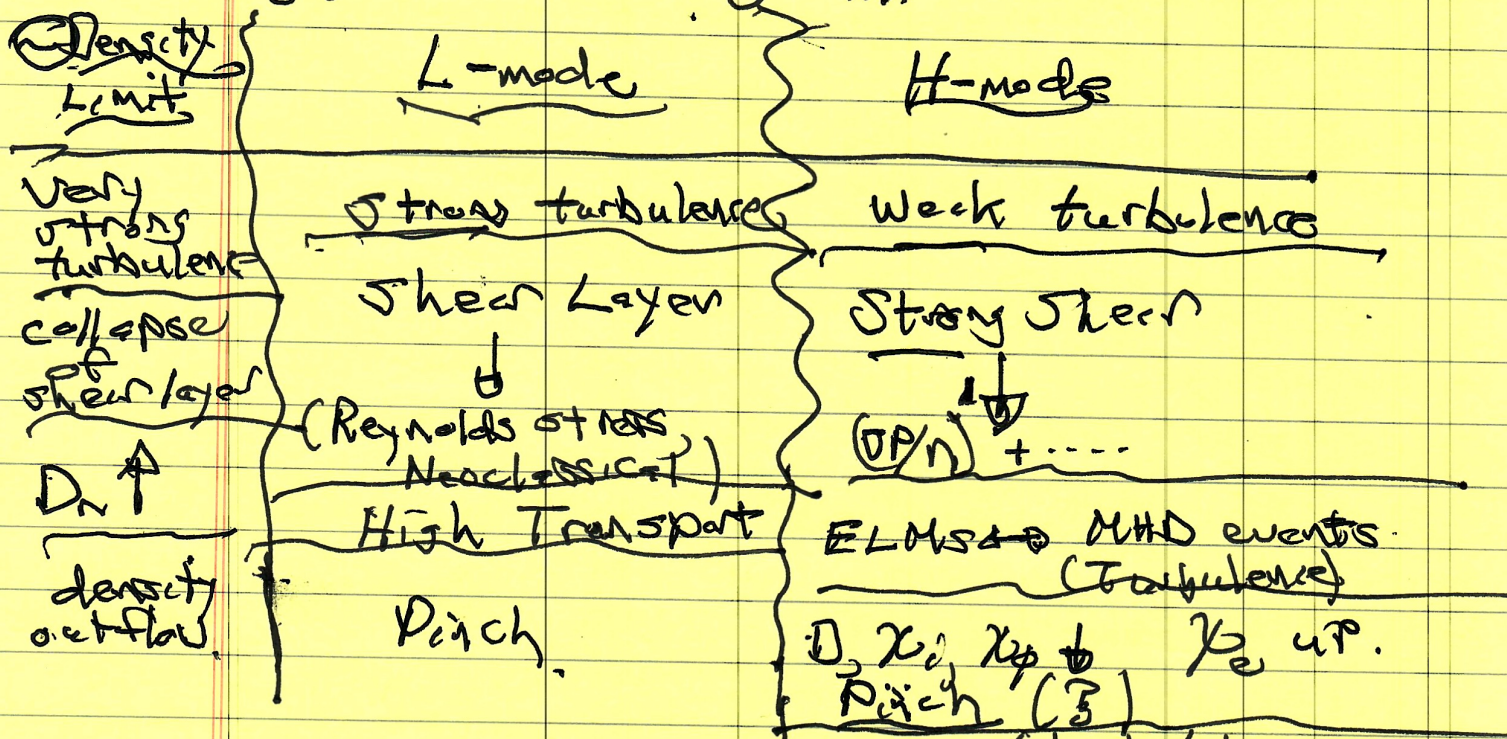 Density
Limit
L-mode
H-mode
Very
strong
turbulence
strong turbulence
Weak turbulence
collapse
of
shear layer
Shear Layer
↓
(Reynolds stress,
Neoclassical)
Strong Shear
↓
(∇P/n) + .....
Dn ↑
High Transport
ELMs ↔ MHD events
(Turbulence)
density
outflow
Pinch.
D, χi, χφ ↓ χe up.
Pinch (?)